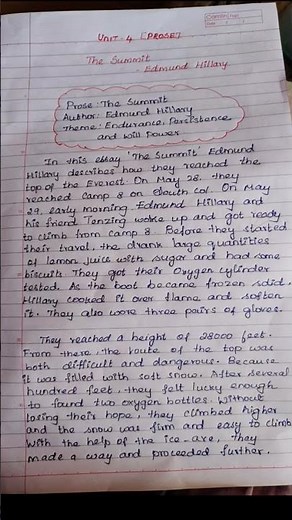 Unit-4 [PROSE]
The Summit
- Edmund Hillary
Prose : The Summit
Author : Edmund Hillary
Theme : Endurance, Persistence
and Will Power
In this essay 'The Summit' Edmund
Hillary describes how they reached the
top of the Everest. On May 28, they
reached Camp 8 on South Col. On May
29, early morning Edmund Hillary and
his friend Tenzing woke up and got ready
to climb from camp 8. Before they started
their travel, the drank large quantities
of lemon juice with sugar and had some
biscuits. They got their oxygen cylinder
tested. As the boot became frozen solid.
Hillary cooked it over flame and soften
it. They also wore three pairs of gloves.
They reached a height of 28000 feet.
From there, the route of the top was
both difficult and dangerous. Because
it was filled with soft snow. After several
hundred feet, they felt lucky enough
to found two oxygen bottles. Without
losing their hope, they climbed higher
and the snow was firm and easy to climb
With the help of the ice-axe, they
made a way and proceeded further.